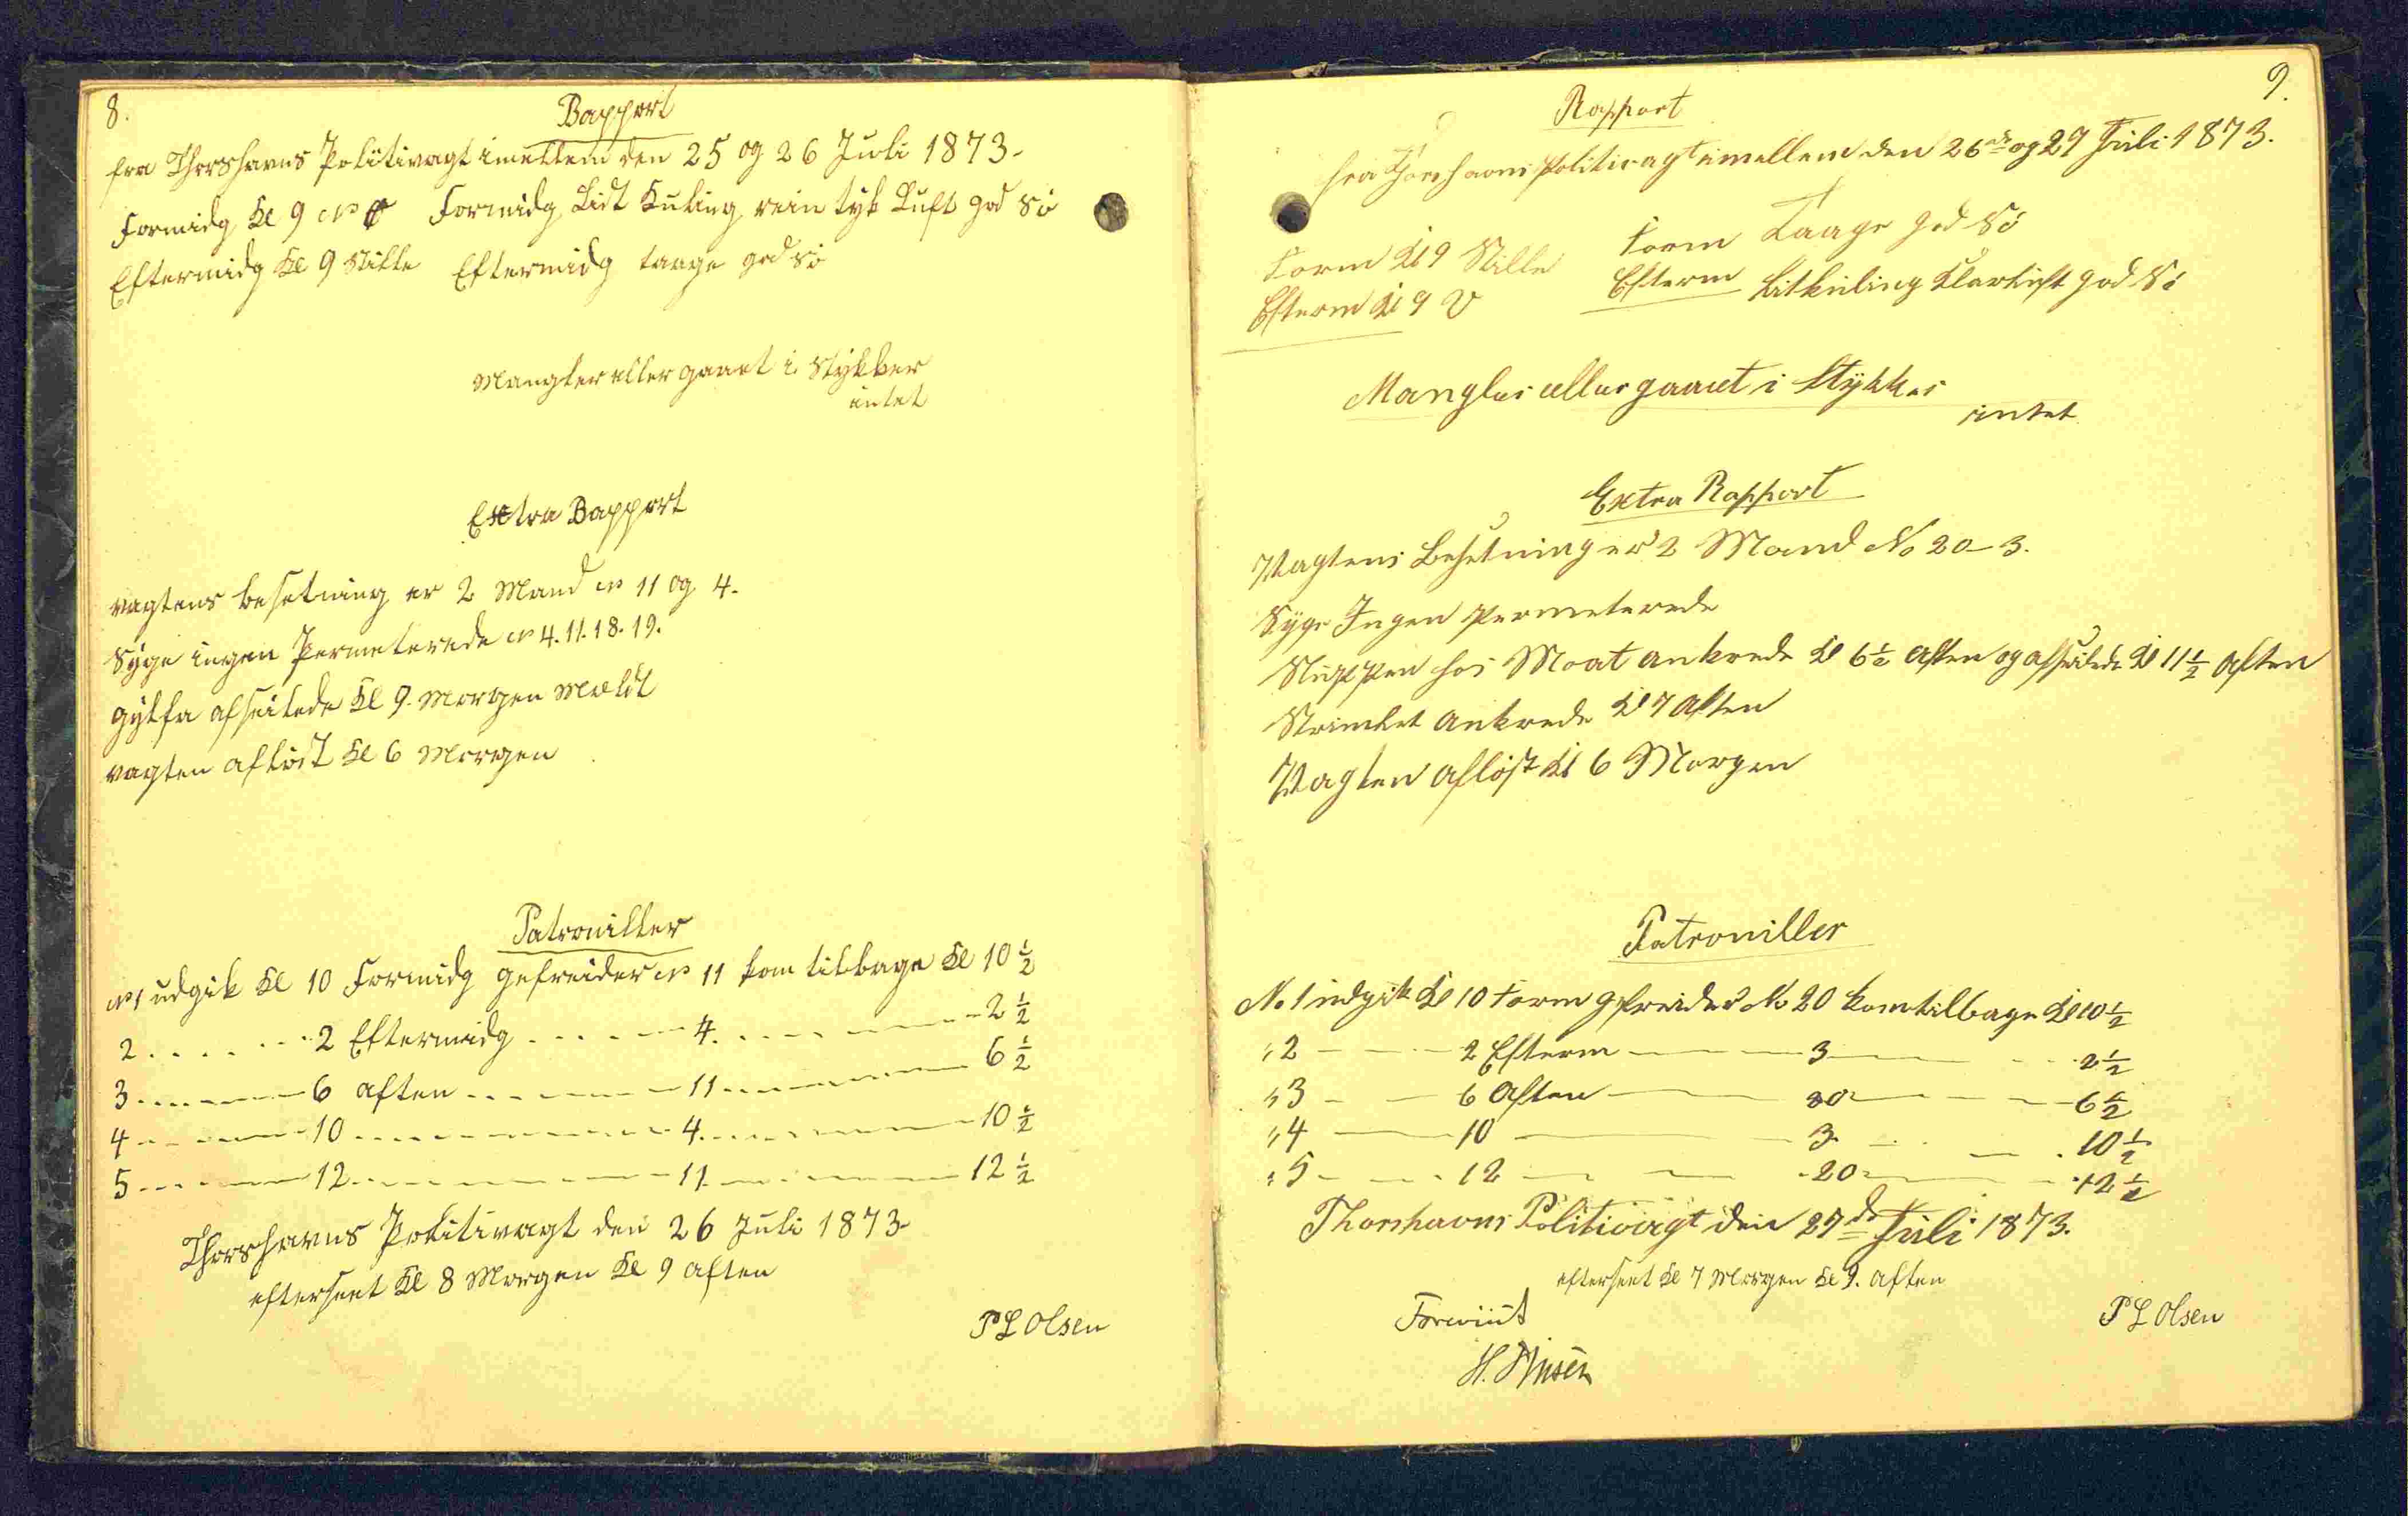 8.
Rapport
fra Thorshavns Politivagt imellem den 25 og 26 Juli 1873-
Formidg Kl 9 N O Formidg Lidt Kuling rein tyk Luft god Sö
Eftermidg Kl 9 Stille Eftermidg taage god Sö
Mangler eller gaaet i Stykker
intet
Extra Rapport
vagtens besetning er 2 Mand No 11 og 4-
Syge ingen Permeterede No 4. 11. 18. 19.
Gylfa afseilede Kl 9 Morgen Meldt
vagten aflöst Kl 6 Morgen
Patrouiller
No 1 udgik Kl 10 Formidg gefreider No 11 kom tilbage Kl 10 ½
2 2 Eftermidg 4 2 ½
3 6 aften 11 6 ½
4 10 4 10 ½
5 12 11 12 ½
Thorshavns Politivagt den 26 Juli 1873-
efterseet Kl 8 Morgen Kl 9 aften
P L Olsen
9.
Rapport
fra Thorshavns Politivagt imellem den 26de og 27 Juli 1873.
Form Kl 9 Stille Form Taage god Sö
Efterm Kl 9 V Efterm Litkuling Klarluft god Sö
Mangler eller gaaet i Stykker
intet
Extra Rapport
Vagtens Besetning er 2 Mand No 20-3.
Syge Ingen Permeterede
Sluppen hos Moat ankrede Kl 6 ½ Aften og afseilede Kl 11 ½ Aften
ankrede Kl 7 Aften
Vagten aflöst Kl 6 Morgen
Patrouiller
No 1 udgik Kl 10 Form gefreider No 20 kom tilbage Kl 10 ½
" 2 2 Efterm 3 2 ½
" 3 6 Aften 20 6 ½
" 4 10 3 10 ½
" 5 12 20 12 ½
Thorshavns Politivagt den 27de Juli 1873.
efterseet Kl 7 Morgen Kl 9. aften
Foreviist
P L Olsen
H.